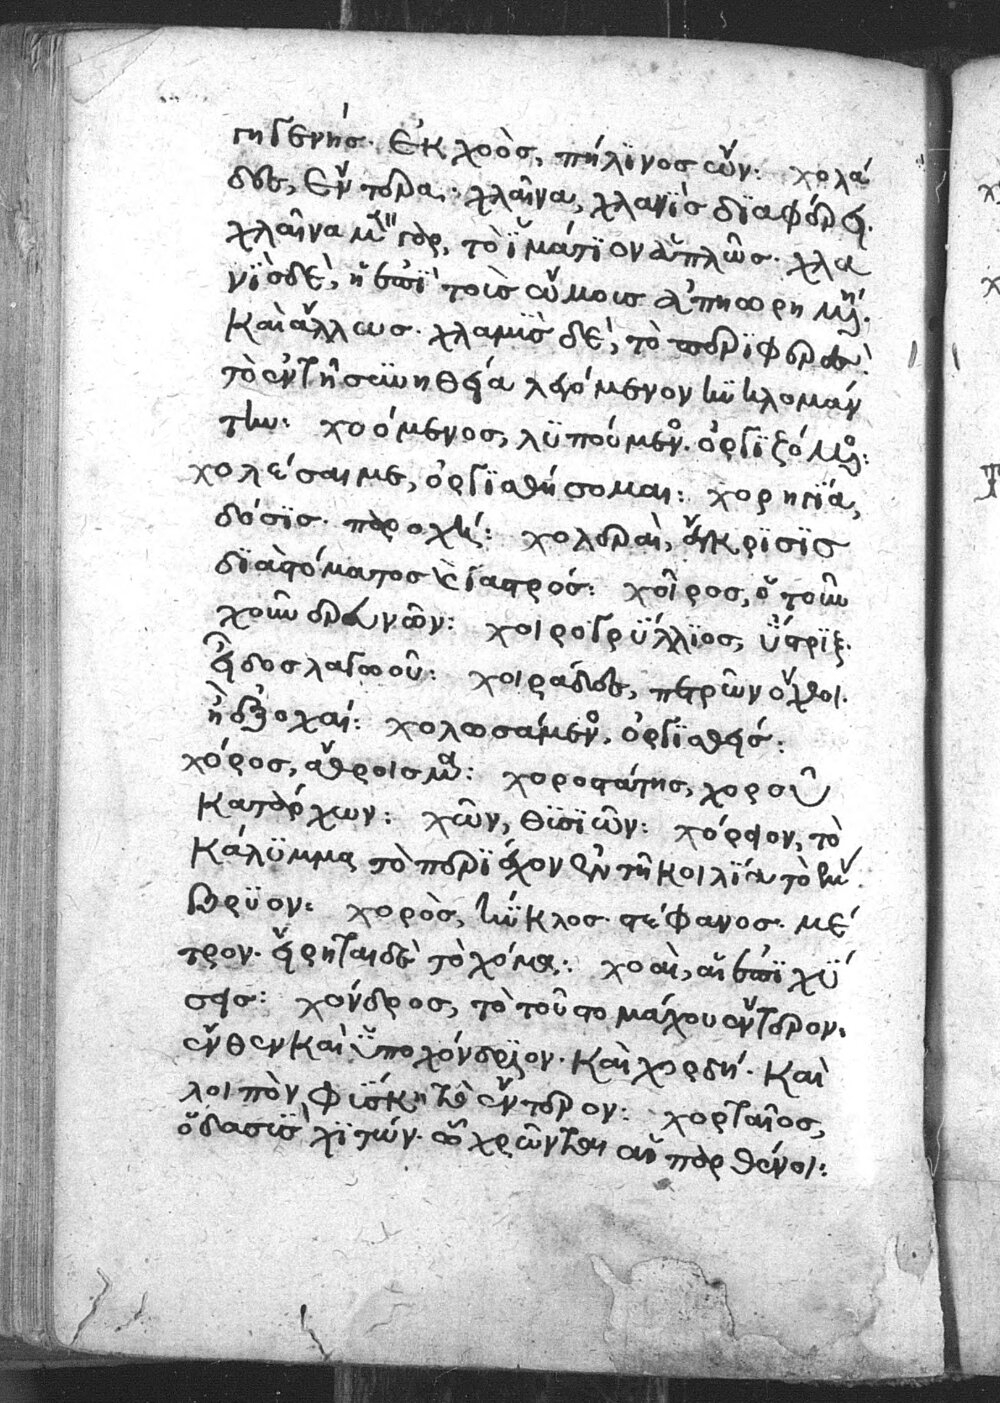 γηγενής· ἐκ χοὸς, πήλϊνος ὤν: χολά
δες, ἔντερα: χλαῖνα, χλανῒς διαφέρει·
χλαῖνα μὲν γὰρ, τὸ ἱμάτϊον ἁπλῶς· χλα
νῒς δὲ, ἡ ἐπὶ τοῖς ὤμοις ἀπῃωρημένη·
καὶ ἄλλως· χλαμῒς δὲ, τὸ περϊφερὲς·
τὸ ἐν τῆ συνηθεία λεγόμενον κυκλομάν
την: χοόμενος, λϋπούμενος· ὀργϊζόμενος:
χολείσαιμε, ὀργϊσθήσομαι: χορηγία,
δόσϊς· παροχή: χολεραὶ, ἔκκρϊσϊς
δϊὰ στόματος καὶ γαστρός: χοῖρος, ὁ τῶν
χοίρων: χοιρογρΰλλϊος, ὕστρϊξ·
εἶδος λαγωοῦ: χοιράδες, πετρῶν ὄχθοι·
ἢ ἐξοχαί: χολωσάμενος, ὀργϊσθείς:
χόρος, ἄθροισμα: χοροστάτης, χοροῦ
κατάρχων: χῶν, θϋσϊῶν: χόριον, τὸ
κάλϋμμα τὸ περϊέχον ἐν τῆ κοιλία τὸ ἔμ
βρϋον: χορὸς, κύκλος· στέφανος· μέ
τρον· εἴρηται δὲ τὸ χόμα: χοαὶ, αἱ ἐπὶ χΰ
σεις: χόνδρος, τὸ τοῦ στομάχου ἔντερον·
ἔνθεν καὶ ὑποχόνδρϊον· καὶ χορδή· καὶ
λοιπὸν φΰσκη τὸ ἔντερον: χορταῖος,
ὁ δασῢς χϊτών· ὧ χρῶνται αἱ παρθένοι: